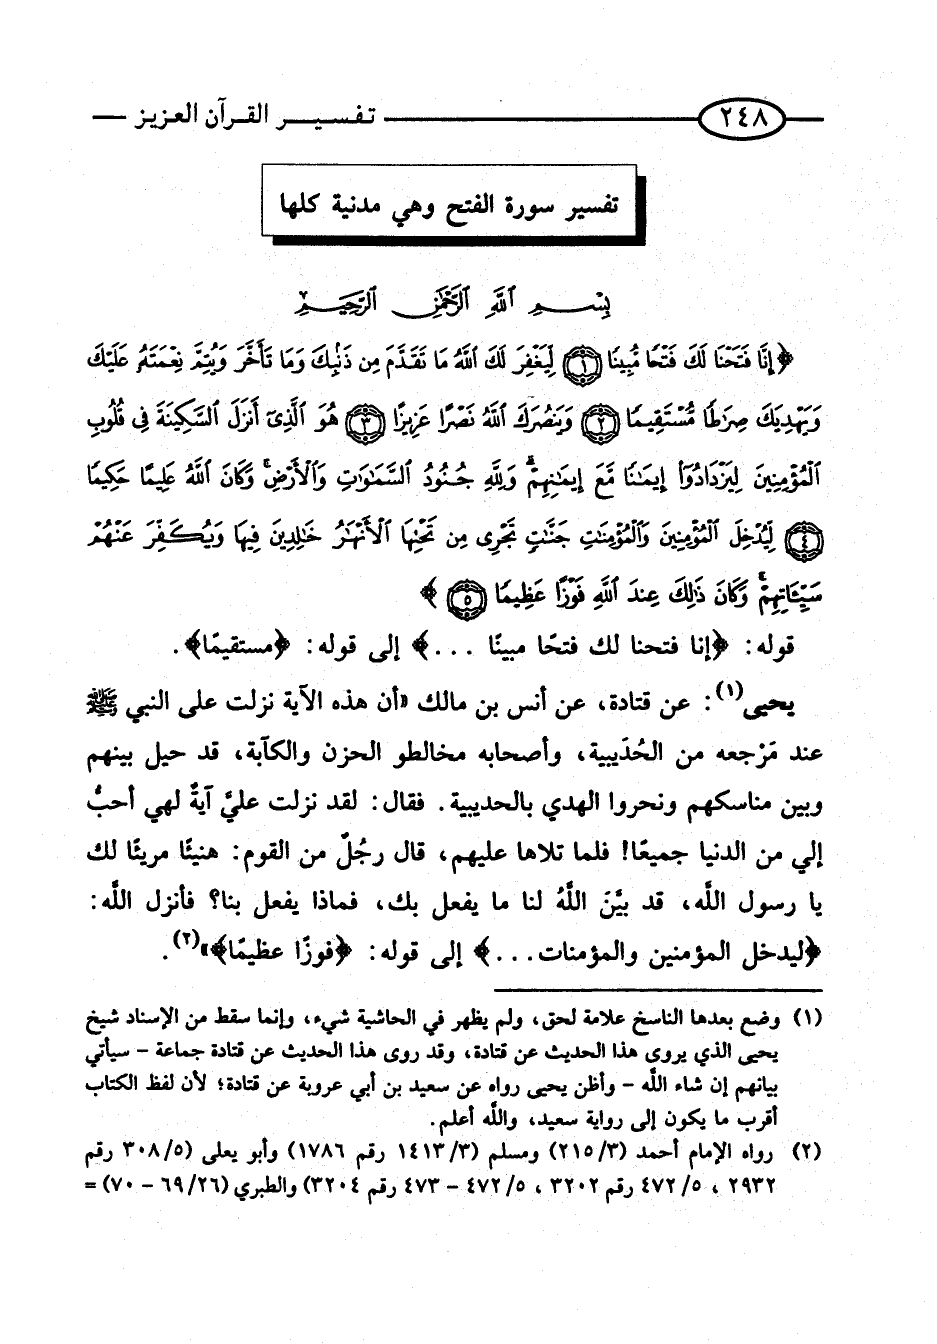 ٢٤٨ تفسير القرآن العزيز
تفسير سورة الفتح وهي مدنية كلها
بِسْمِ اللَّهِ الرَّحْمَٰنِ الرَّحِيمِ
﴿إِنَّا فَتَحْنَا لَكَ فَتْحًا مُّبِينًا ۝١ لِّيَغْفِرَ لَكَ اللَّهُ مَا تَقَدَّمَ مِن ذَنۢبِكَ وَمَا تَأَخَّرَ وَيُتِمَّ نِعْمَتَهُۥ عَلَيْكَ
وَيَهْدِيَكَ صِرَٰطًا مُّسْتَقِيمًا ۝٢ وَيَنصُرَكَ اللَّهُ نَصْرًا عَزِيزًا ۝٣ هُوَ الَّذِىٓ أَنزَلَ السَّكِينَةَ فِى قُلُوبِ
الْمُؤْمِنِينَ لِيَزْدَادُوٓا۟ إِيمَٰنًا مَّعَ إِيمَٰنِهِمْ ۗ وَلِلَّهِ جُنُودُ السَّمَٰوَٰتِ وَالْأَرْضِ ۚ وَكَانَ اللَّهُ عَلِيمًا حَكِيمًا
۝٤ لِّيُدْخِلَ الْمُؤْمِنِينَ وَالْمُؤْمِنَٰتِ جَنَّٰتٍ تَجْرِى مِن تَحْتِهَا الْأَنْهَٰرُ خَٰلِدِينَ فِيهَا وَيُكَفِّرَ عَنْهُمْ
سَيِّـَٔاتِهِمْ ۚ وَكَانَ ذَٰلِكَ عِندَ اللَّهِ فَوْزًا عَظِيمًا ۝٥﴾
قوله: ﴿إنا فتحنا لك فتحًا مبينًا ...﴾ إلى قوله: ﴿مستقيمًا﴾.
يحيى(١): عن قتادة، عن أنس بن مالك «أن هذه الآية نزلت على النبي ﷺ
عند مَرْجعه من الحُدَيبية، وأصحابه مخالطو الحزن والكآبة، قد حيل بينهم
وبين مناسكهم ونحروا الهدي بالحديبية. فقال: لقد نزلت عليَّ آيةٌ لهي أحبُّ
إلي من الدنيا جميعًا! فلما تلاها عليهم، قال رجُلٌ من القوم: هنيئًا مريئًا لك
يا رسول اللَّه، قد بيَّنَ اللَّهُ لنا ما يفعل بك، فماذا يفعل بنا؟ فأنزل اللَّه:
﴿ليدخل المؤمنين والمؤمنات...﴾ إلى قوله: ﴿فوزًا عظيمًا﴾»(٢).
(١) وضع بعدها الناسخ علامة لحق، ولم يظهر في الحاشية شيء، وإنما سقط من الإسناد شيخ
يحيى الذي يروي هذا الحديث عن قتادة، وقد روى هذا الحديث عن قتادة جماعة - سيأتي
بيانهم إن شاء اللَّه - وأظن يحيى رواه عن سعيد بن أبي عروبة عن قتادة؛ لأن لفظ الكتاب
أقرب ما يكون إلى رواية سعيد، واللَّه أعلم.
(٢) رواه الإمام أحمد (٢١٥/٣) ومسلم (١٤١٣/٣ رقم ١٧٨٦) وأبو يعلى (٣٠٨/٥ رقم
٢٩٣٢ ، ٤٧٢/٥ رقم ٣٢٠٢ ، ٤٧٢/٥ - ٤٧٣ رقم ٣٢٠٤) والطبري (٦٩/٢٦ - ٧٠) =